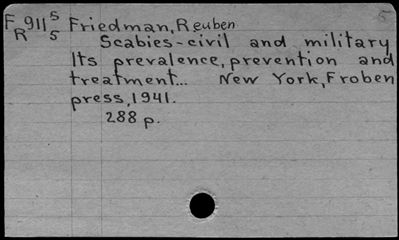 5
F911⁵ Friedman, Reuben
R 5 Scabies-civil and military
Its prevalence, prevention and
treatment... New York, Froben
press, 1941.
288 p.